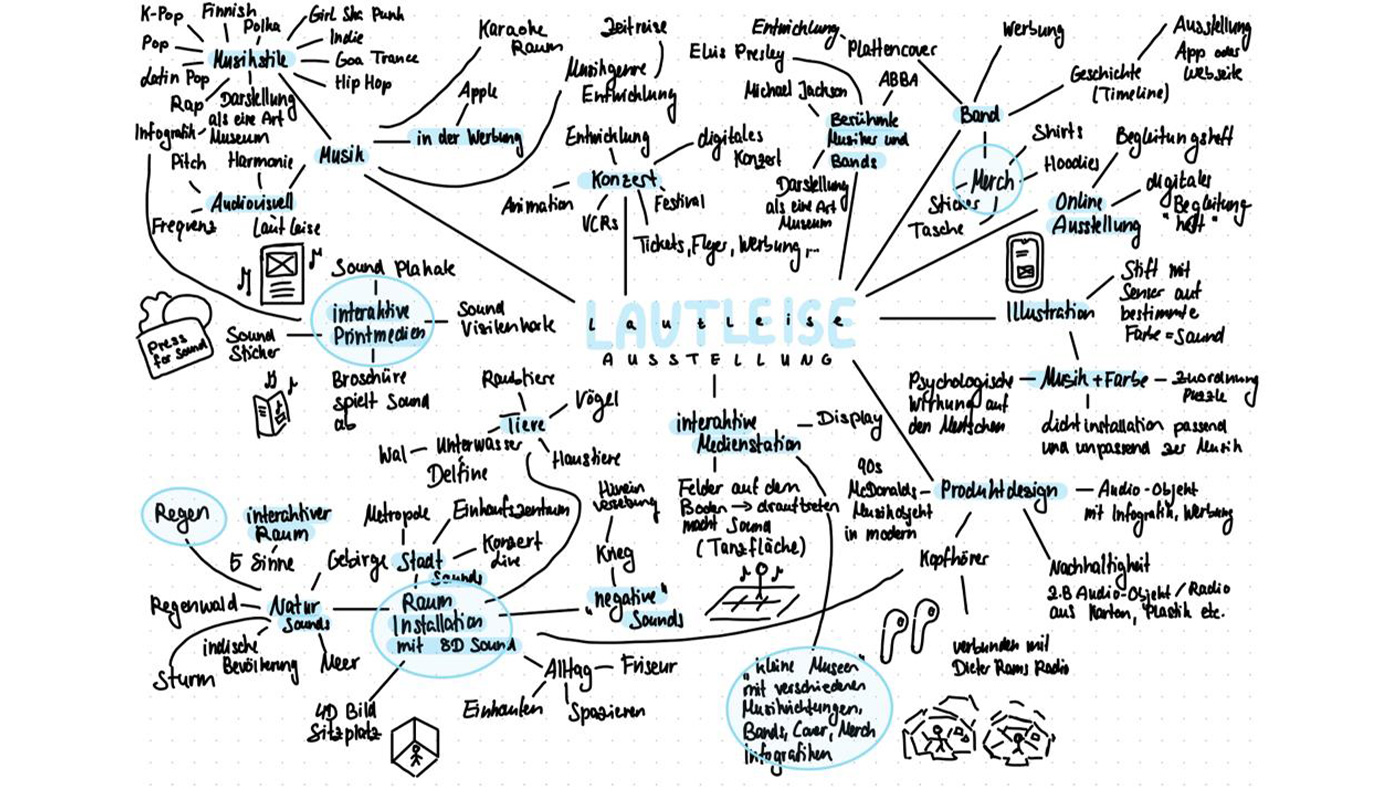 K-Pop
Finnish
Polka
Girl Ska Punk
Pop
Musikstile
Indie
Goa Trance
Latin Pop
Hip Hop
Rap
Darstellung
als eine Art
Museum
Infografik
Musik
Karaoke
Raum
Apple
in der Werbung
Zeitreise
Musikgenre
Entwicklung
Pitch
Harmonie
Audiovisuell
Frequenz
Laut Leise
Entwicklung
digitales
Konzert
Konzert
Animation
VCRs
Festival
Tickets, Flyer, Werbung,...
Entwicklung
Plattencover
Elvis Presley
Michael Jackson
ABBA
Berühmte
Musiker und
Bands
Darstellung
als eine Art
Museum
Werbung
Band
Geschichte
(Timeline)
Ausstellung
App oder
Webseite
Shirts
Hoodies
Merch
Sticker
Tasche
Begleitungsheft
Online
Ausstellung
digitales
"Begleitung
heft"
Sound Plakate
interaktive
Printmedien
Sound
Visitenkarte
Sound
Sticker
Press
for Sound
Broschüre
spielt Sound
ab
LAUTLEISE
Lautleise
AUSSTELLUNG
Illustration
Stift mit
Sensor auf
bestimmte
Farbe = Sound
Psychologische
Wirkung auf
den Menschen
Musik + Farbe
Zuordnung
Puzzle
Lichtinstallation passend
und unpassend zur Musik
Raubtiere
Vögel
Tiere
Wal
Unterwasser
Delfine
Haustiere
interaktive
Medienstation
Display
Felder auf dem
Boden → drauftreten
macht Sound
(Tanzfläche)
90s
McDonalds
Musikobjekt
in modern
Produktdesign
Audio-Objekt
mit Infografik, Werbung
Kopfhörer
Nachhaltigkeit
z.B Audio-Objekt / Radio
aus Karton, Plastik etc.
verbunden mit
Dieter Rams Radio
Regen
interaktiver
Raum
5 Sinne
Metropole
Einkaufszentrum
Gebirge
Stadt
Sounds
Konzert
Live
Hinein
versetzung
Krieg
"negative"
Sounds
Regenwald
Natur
Sounds
Raum
Installation
mit 8D Sound
indische
Bevölkerung
Meer
Sturm
4D Bild
Sitzplatz
Alltag
Friseur
Einkaufen
Spazieren
"kleine Museen"
mit verschiedenen
Musikrichtungen,
Bands, Cover, Merch
Infografiken